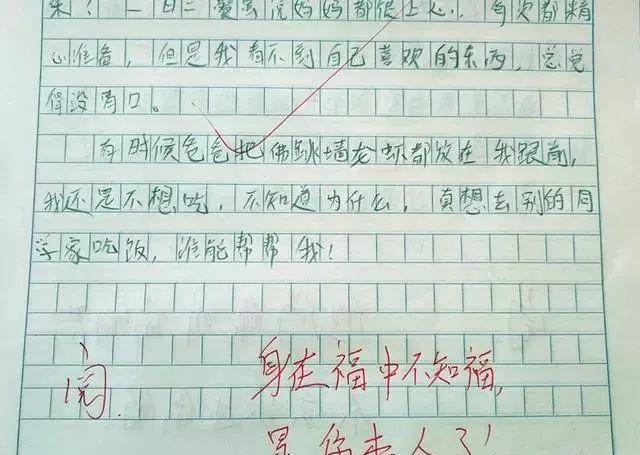 来？一日三餐虽说妈妈都很上心，每次都精
心准备，但是我看不到自己喜欢的东西，总觉
得没胃口。
有时候爸爸把佛跳墙龙虾都放在我跟前，
我还是不想吃，不知道为什么，真想去别的同
学家吃饭，谁能帮帮我！
阅.
身在福中不知福，
人了！